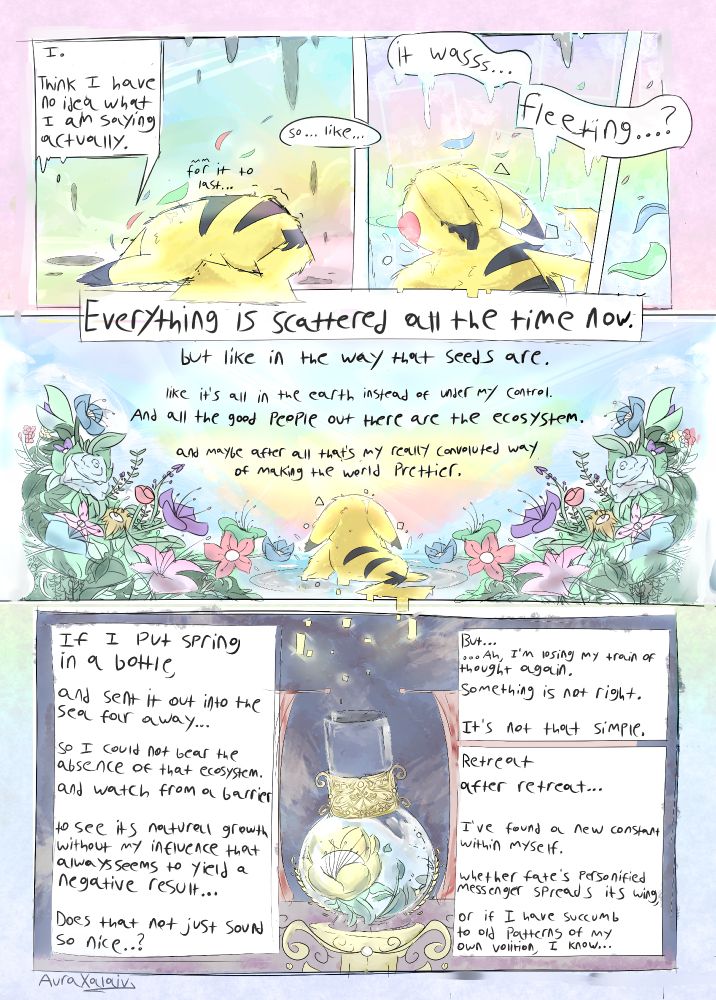 I.
Think I have
no idea what
I am saying
actually.
so... like...
for it to
last...
it wasss...
fleeting...?
Everything is scattered all the time now.
but like in the way that seeds are.
like it's all in the earth instead of under my control.
And all the good people out there are the ecosystem.
and maybe after all that's my really convoluted way
of making the world prettier.
If I put spring
in a bottle,
and sent it out into the
sea far away...
so I could not bear the
absence of that ecosystem.
and watch from a barrier
to see its natural growth
without my influence that
always seems to yield a
negative result...
Does that not just sound
so nice..?
But...
...Ah, I'm losing my train of
thought again.
Something is not right.
It's not that simple.
Retreat
after retreat...
I've found a new constant
within myself.
whether fate's personified
messenger spreads its wing
or if I have succumb
to old patterns of my
own volition, I know...
AuraXalaiv